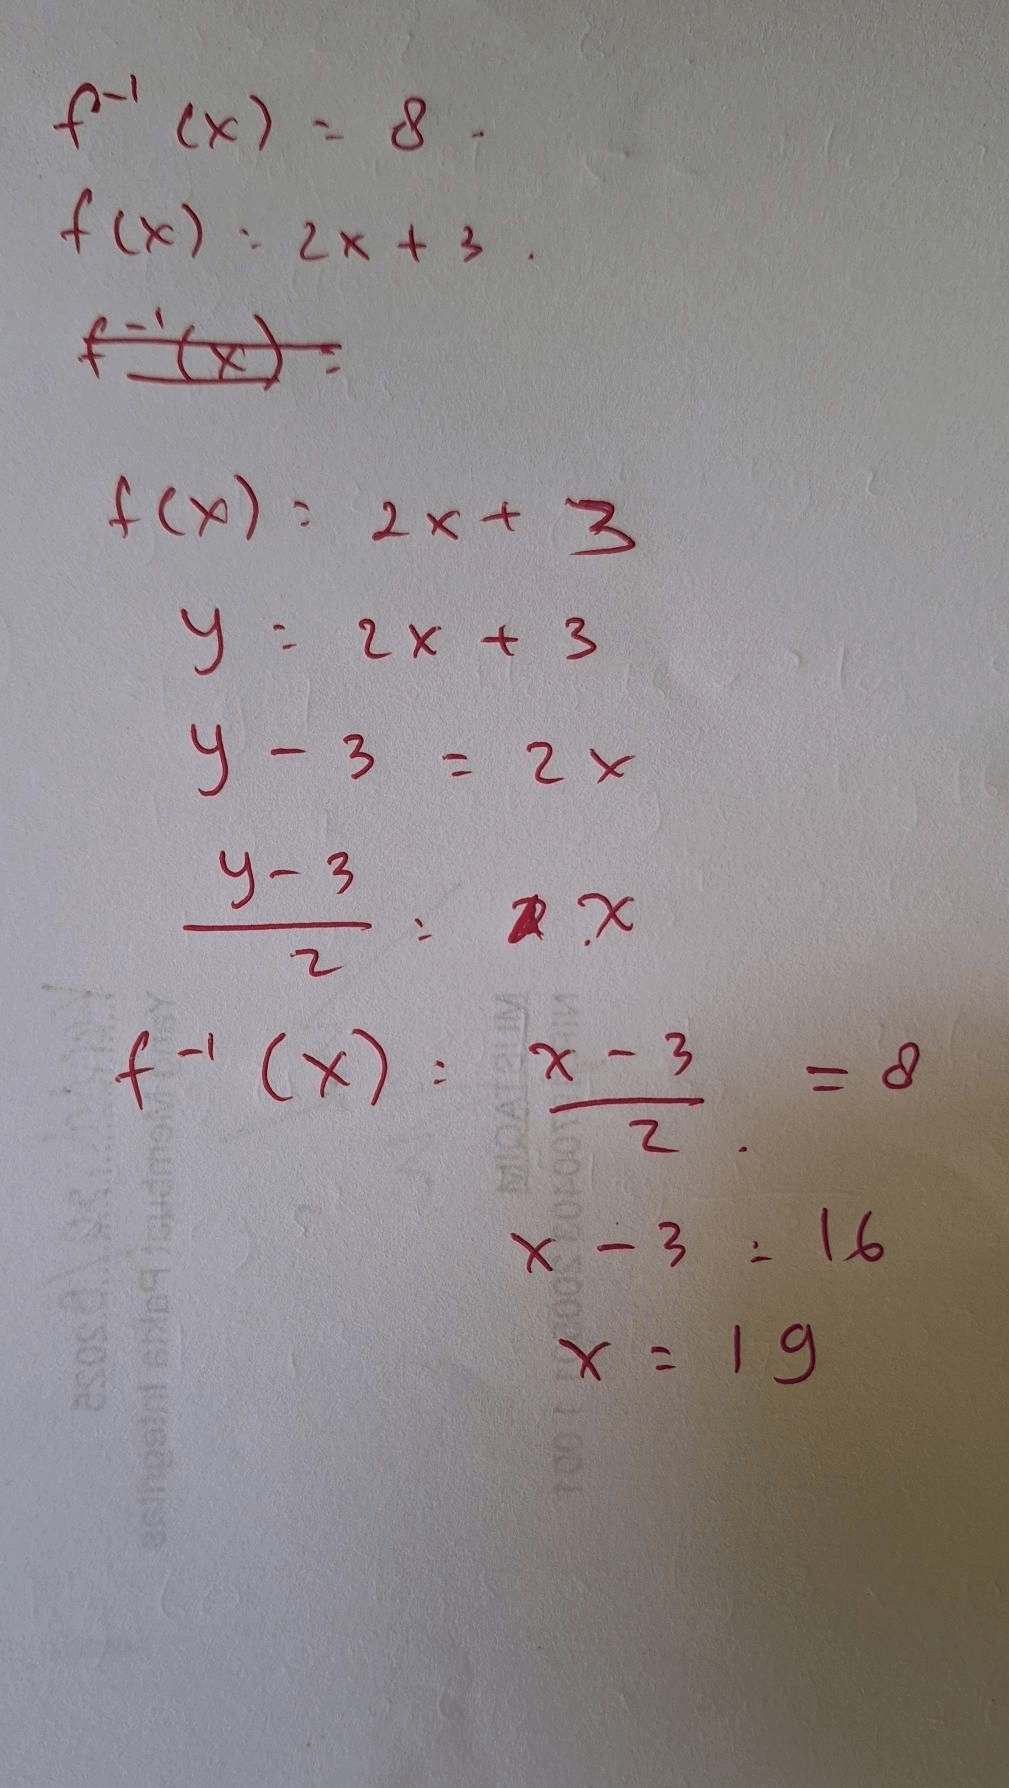 f⁻¹ (x) = 8 .
f(x) = 2x + 3 .
f⁻¹(x) =
f(x) = 2x + 3
y = 2x + 3
y - 3 = 2x
y-3 / 2 = x
f⁻¹ (x) = x - 3 / 2 . = 8
x - 3 = 16
x = 19